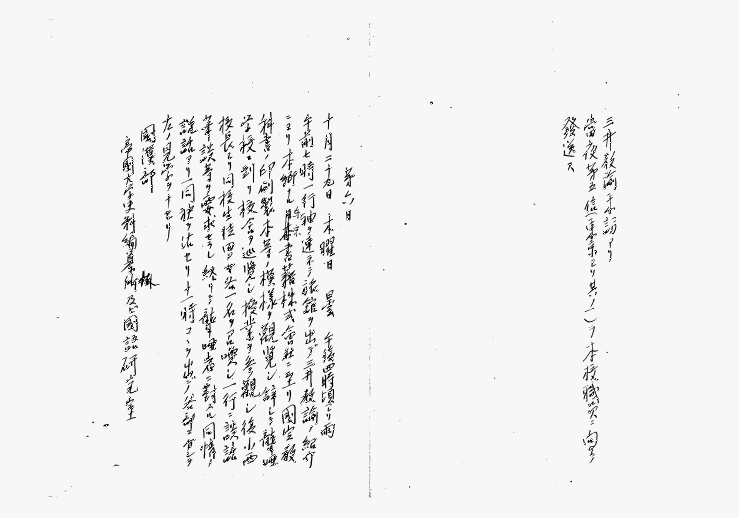 三井教諭来訪アリ
當夜第五信(東京ヨリ其ノ一)ヲ本校職員ニ向ケ
發送ス
第六日
十月二十九日 木曜日 曇 午後四時頃ヨリ雨
午前七時一行袖ヲ連ネテ旅館ヲ出デ三井教諭ノ紹介
ニヨリ本郷ナル東京書籍株式會社ニ至リ國定教
科書ノ印刷製本等ノ模様ヲ觀覧シ辞シテ聾唖
学校ニ到リ校舎ヲ巡覧シ授業ヲ参觀シ後小西
校長ヨリ同校生徒男女各一名ヲ召喚シ一行ニ談話
筆談等ヲ要求セラレ終リニ聾唖者ニ對スル同情ノ
談話アリ一同 時コヽヲ出デ各部ニ分レテ
左ノ見学ヲナセリ
國漢部
帝國大学史料編纂掛及ビ國語研究室